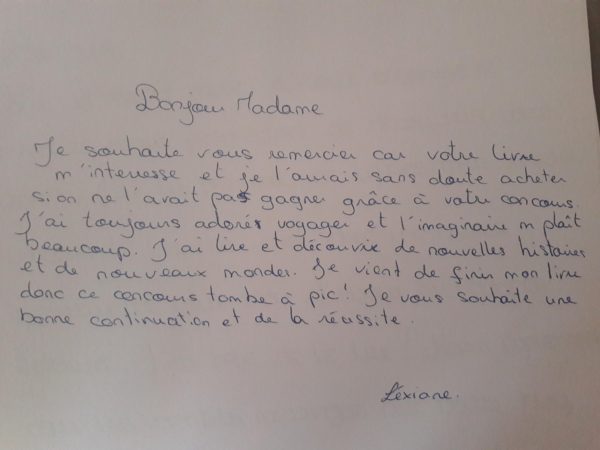 Bonjour Madame
Je souhaite vous remercier car votre livre
m'interresse et je l'aurais sans doute acheter
si on ne l'avait pas gagner grâce à votre concours.
J'ai toujours adorés voyager et l'imaginaire m plaît
beaucoup. J'ai lire et découvrir de nouvelles histoires
et de nouveaux mondes. Je vient de finir mon livre
donc ce concours tombe à pic! Je vous souhaite une
bonne continuation et de la réussite.
Léxiane.